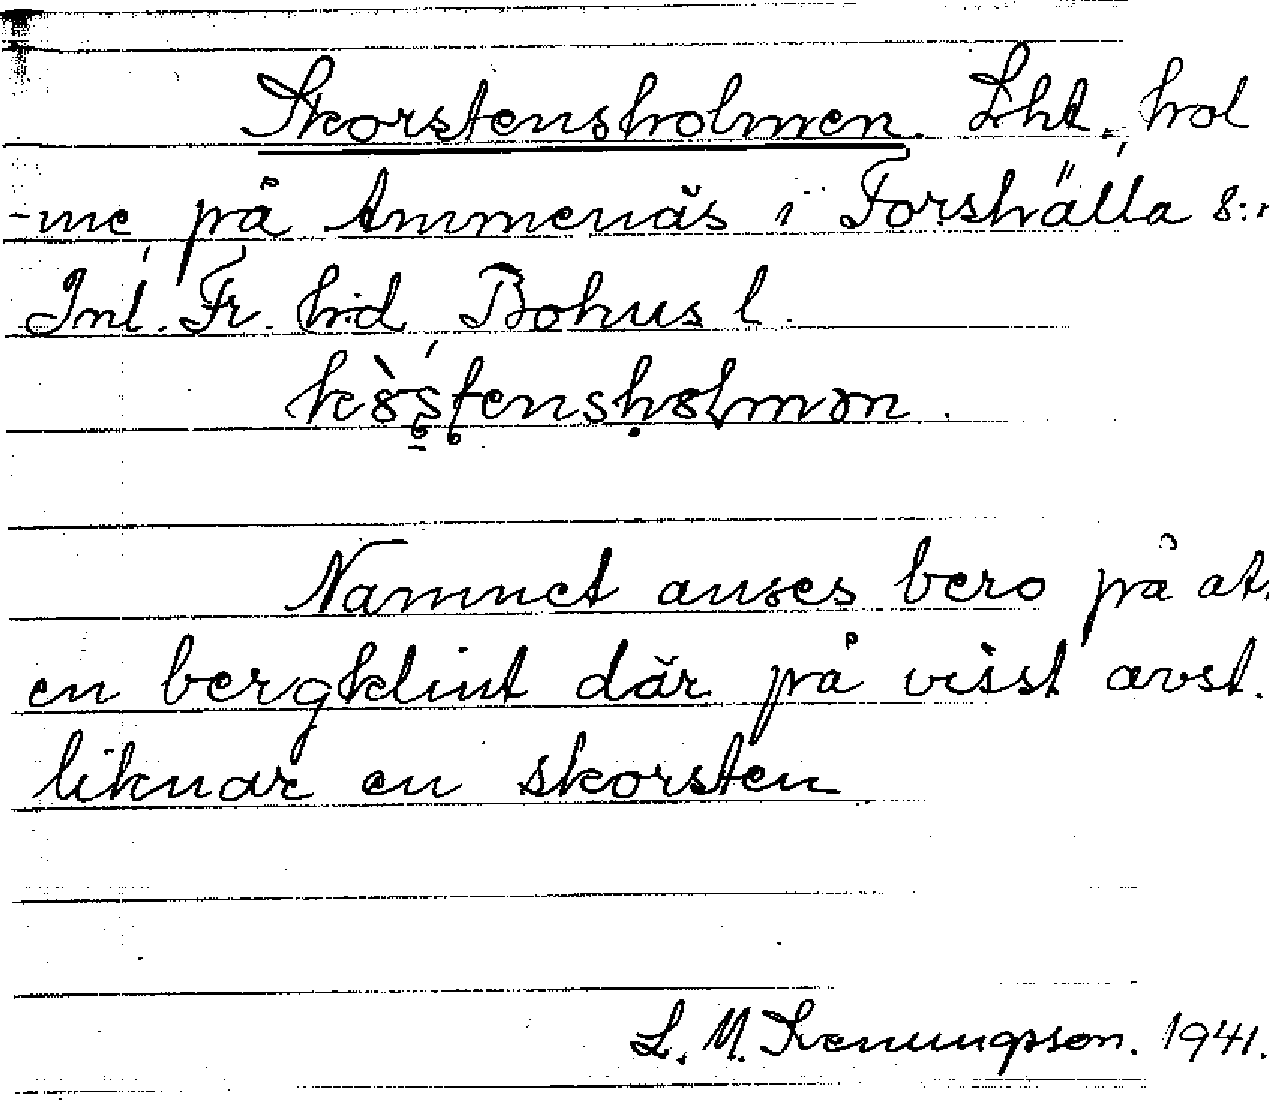 Skorstensholmen. Lht, hol
-me på Ammenäs i Forshälla s:n
Inl. Fr. hd, Bohus l.
Namnet anses bero på att
en bergklint där på visst avst.
liknar en skorsten
L. M. Svenungsson. 1941.